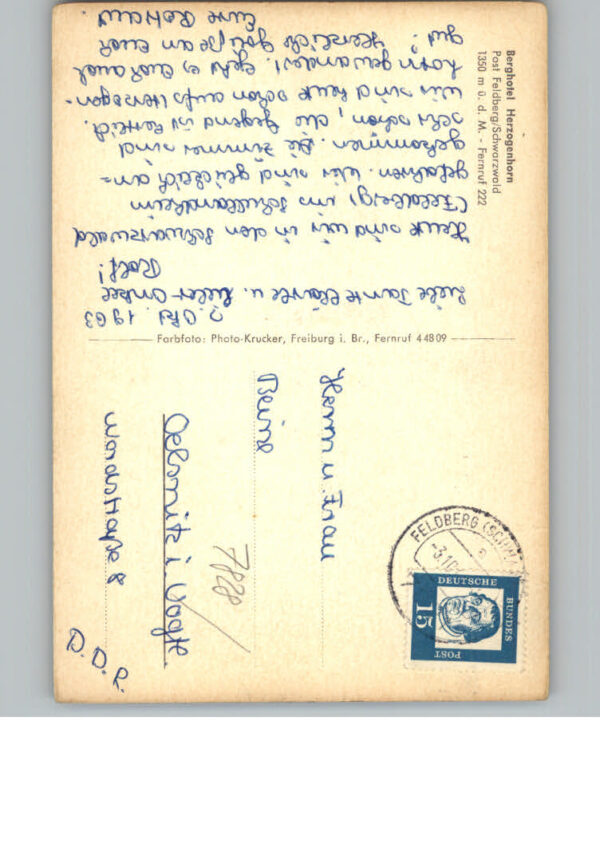 Berghotel Herzogenhorn
Post Feldberg/Schwarzwald
1350 m ü. d. M. - Fernruf 222
2. Okt. 1963
Liebe Tante u. lieber Onkel
Rolf!
Heute sind wir in den Schwarzwald
(Feldberg) ins Schullandheim
gefahren. Wir sind glücklich an-
gekommen. Die Zimmer sind
sehr schön, die Gegend ist herrlich.
Wir sind heute schon aufs Herzogen-
horn gewandert. Geht es Euch auch
gut? Herzliche Grüße an Euch
Eure
Farbfoto: Photo-Krucker, Freiburg i. Br., Fernruf 44809
Herrn u. Frau
Oelsnitz i. Vogtl.
D.D.R.
7828
FELDBERG (SCHW
-3.10
DEUTSCHE
BUNDES
POST
15